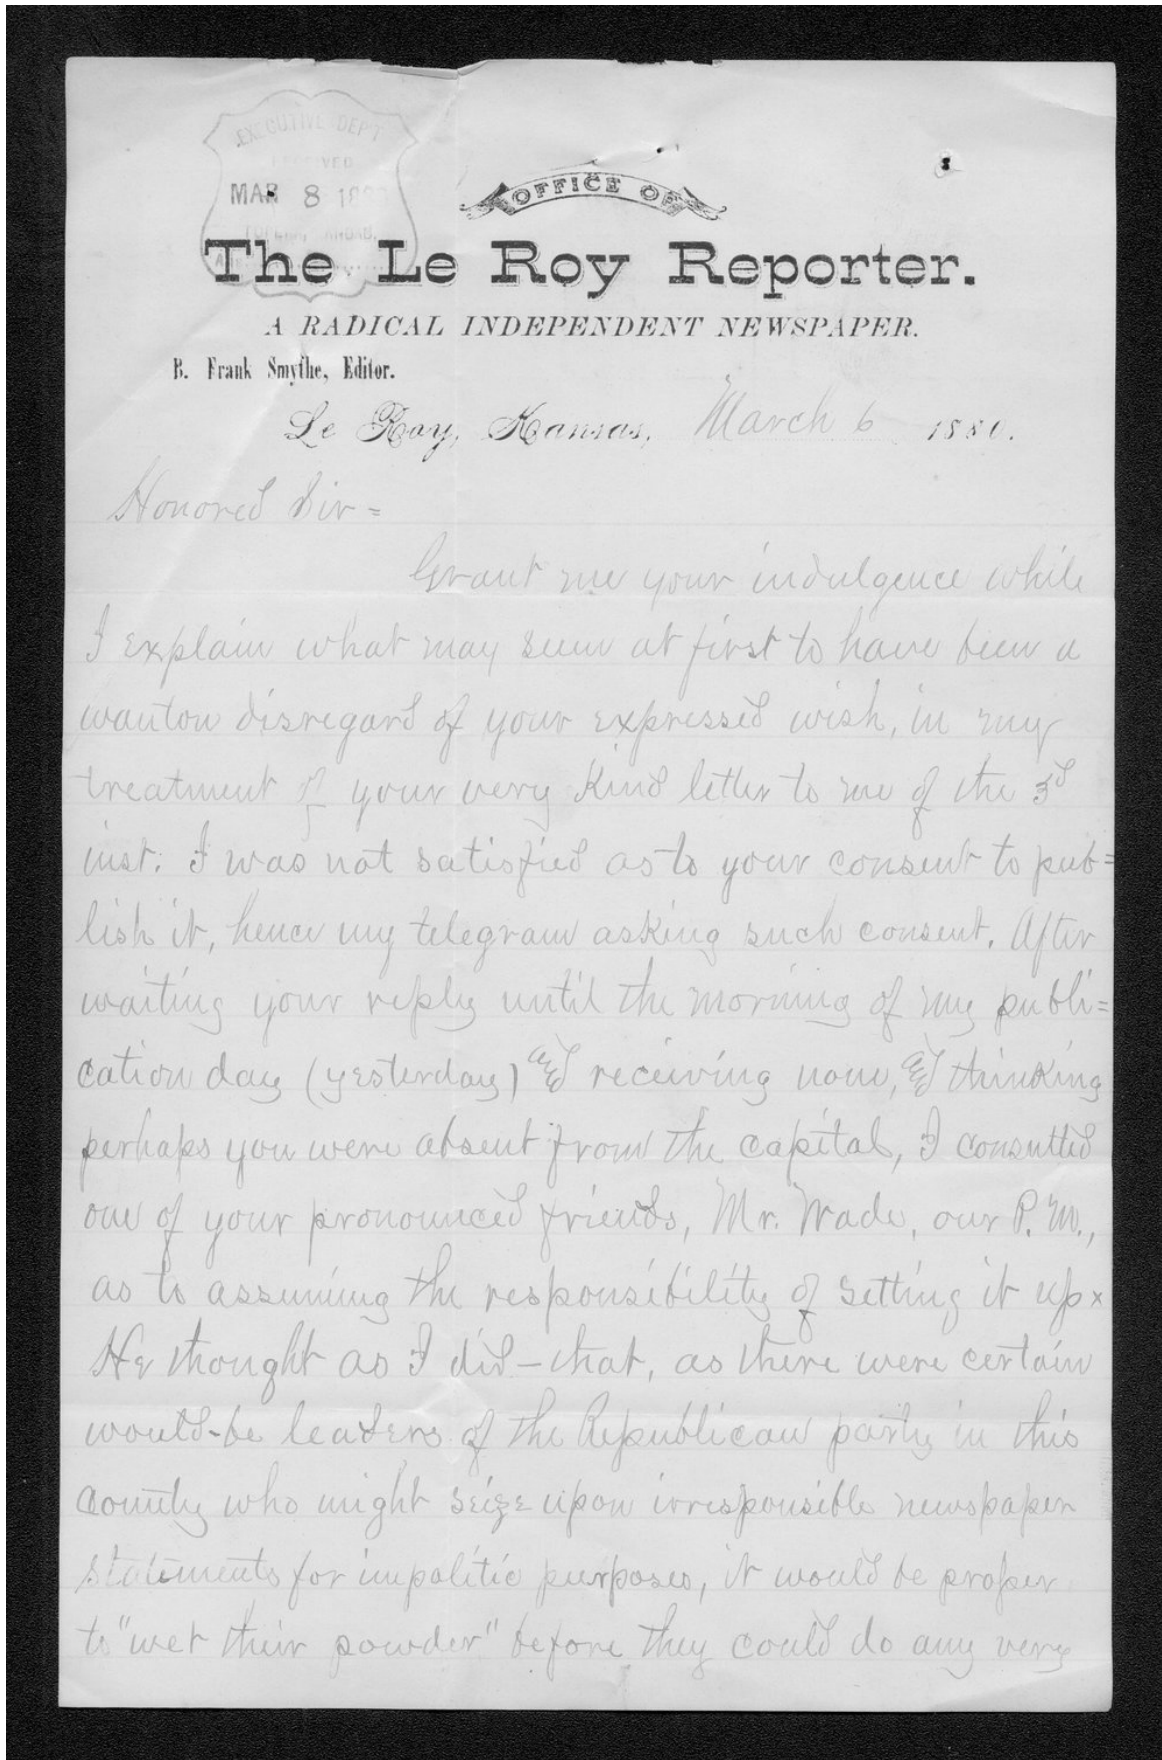 EXECUTIVE DEP'T
RECEIVED
MAR 8 18
TOPEKA, KANSAS.
OFFICE OF
The Le Roy Reporter.
A RADICAL INDEPENDENT NEWSPAPER.
B. Frank Smythe, Editor.
Le Roy, Kansas, March 6 1880.
Honored Sir =
Grant me your indulgence while
I explain what may seem at first to have been a
wanton disregard of your expressed wish, in my
treatment of your very kind letter to me of the 3d
inst. I was not satisfied as to your consent to pub=
lish it, hence my telegram asking such consent. After
waiting your reply until the morning of my publi=
cation day (yesterday) and receiving none, and thinking
perhaps you were absent from the capital, I consulted
one of your pronounced friends, Mr. Wade, our P. M.,
as to assuming the responsibility of setting it up x
He thought as I did – that, as there were certain
would-be leaders of the Republican party in this
county who might seize upon irresponsible newspaper
statements for impolitic purposes, it would be proper
to "wet their powder" before they could do any very